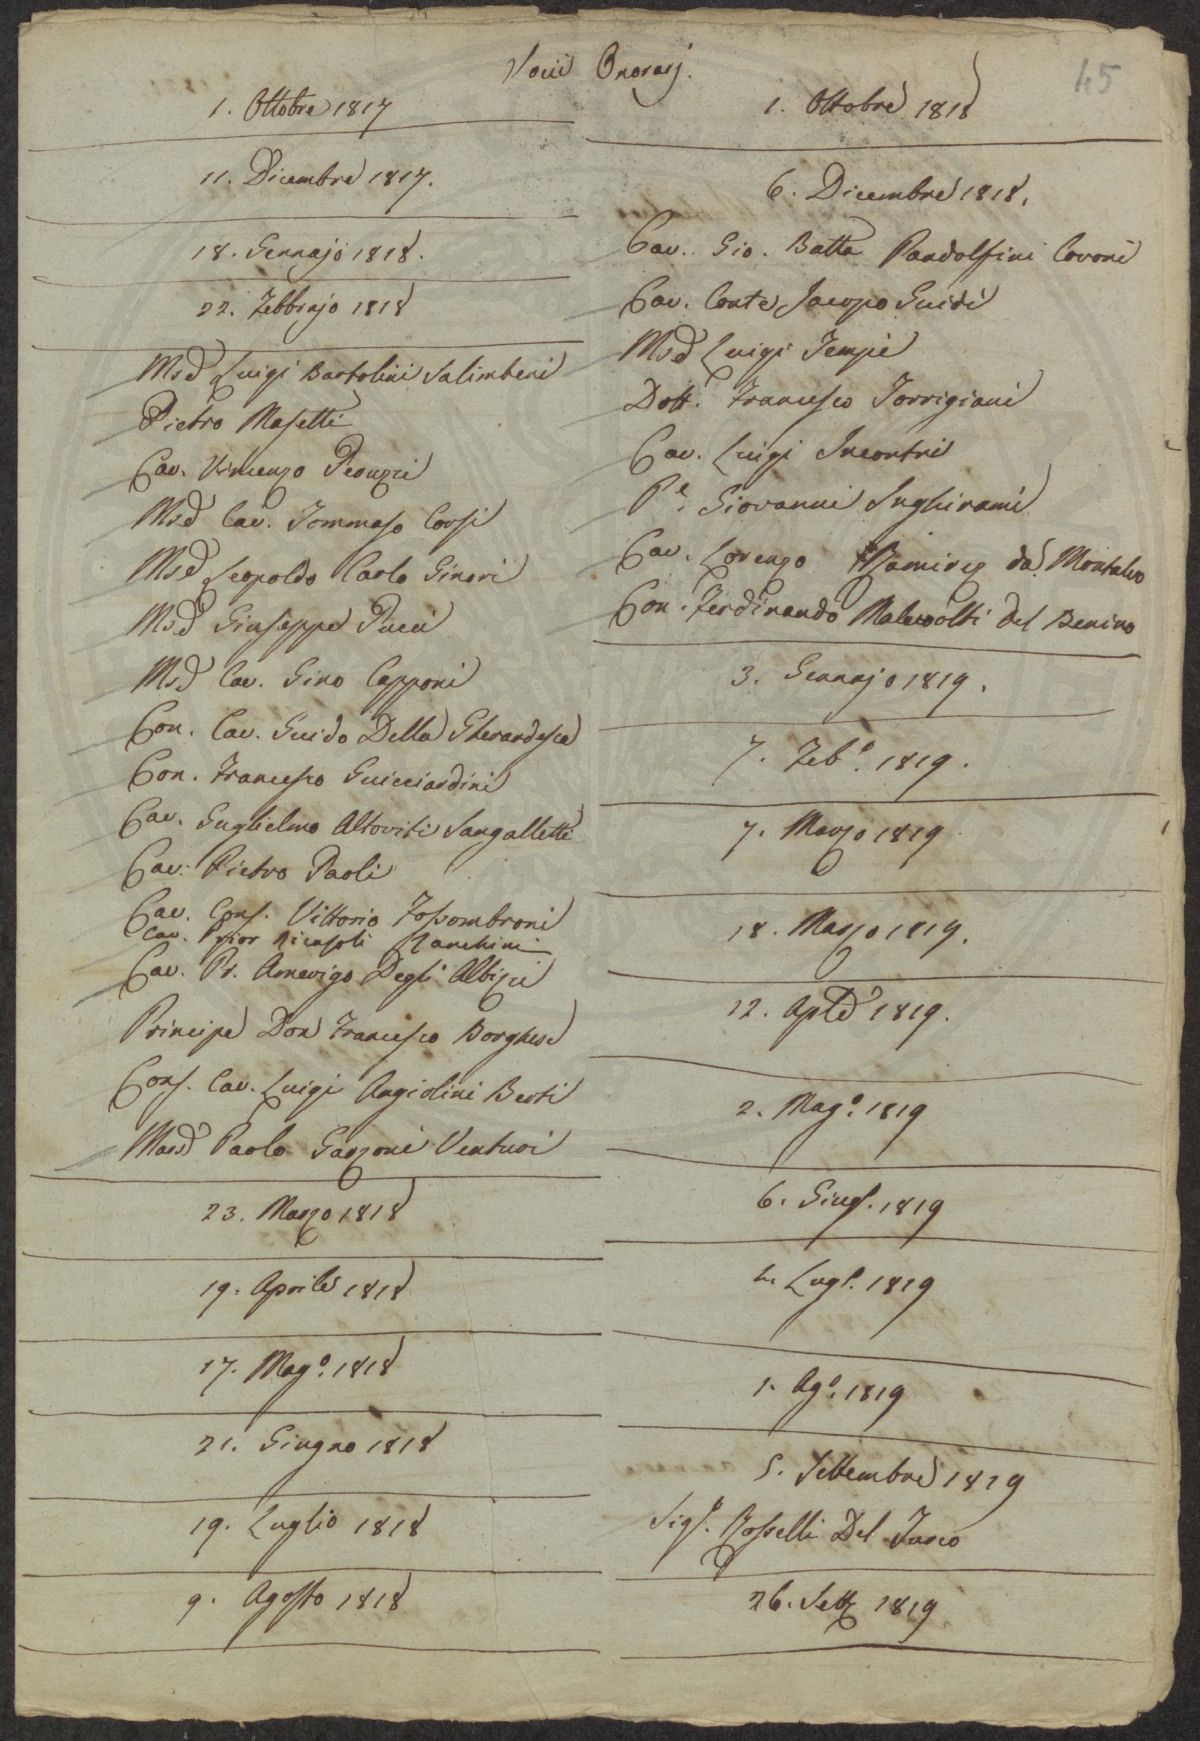 Socii Onorarj.
45
1. Ottobre 1817
11. Dicembre 1817.
18. Gennajo 1818.
22. Febbrajo 1818
Mse Luigi Bartolini Salimbeni
Pietro Masetti
Cav. Vincenzo Peruzzi
Mse Cav. Tommaso Corsi
Mse Leopoldo Carlo Ginori
Mse Giuseppe Pucci
Mse Cav. Gino Capponi
Con. Cav. Guido Della Gherardesca
Con. Francesco Guicciardini
Cav. Guglielmo Altoviti Sangalletti
Cav. Pietro Paoli
Cav. Cons. Vittorio Fossombroni
Cav. Prior Ricasoli Zanchini
Cav. Pr. Amerigo Degli Albizzi
Principe Don Francesco Borghese
Cons. Cav. Luigi Angiolini Berti
Marse Paolo Garzoni Venturi
23. Marzo 1818
19. Aprile 1818
17. Mago. 1818
21. Giugno 1818
19. Luglio 1818
9. Agosto 1818
1. Ottobre 1818
6. Dicembre 1818.
Cav. Gio. Batta Pandolfini Covoni
Cav. Conte Jacopo Guidi
Mse Luigi Tempi
Dott. Francesco Torrigiani
Cav. Luigi Incontri
Pe. Giovanni Inghirami
Cav. Lorenzo Ramirez da Montalvo
Con. Ferdinando Malevolti Del Benino
3. Gennajo 1819.
7. Febo. 1819.
7. Marzo 1819
18. Marzo 1819.
12. Aple 1819.
2. Mago. 1819
6. Giug. 1819
Lugl. 1819
1. Ago. 1819
5. Settembre 1819
Sigr. Rosselli Del Turco
26. Sett 1819